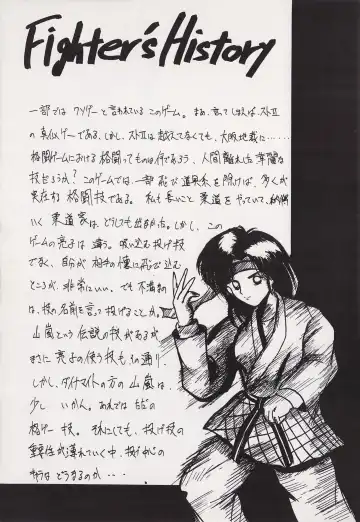 Fighter's History
一部では クソゲーと言われているこのゲーム。まぁ、言ってしまえば、ストII
の真似ゲーである。しかし、ストIIは越えてなくても、大阪地裁に……
格闘ゲームにおける格闘ってものは何であろう、人間離れした華麗な
技だろうか？このゲームでは、一部 飛び道具系を除けば、多くが
実在する 格闘技である。私も長いこと 柔道をやっていて、納得
いく 柔道家は、どうしても 出なかった。しかし、この
ゲームの亮子は 違う。吸い込む投げ技
でなく、自分が 相手の懐に飛び込む
ところが、非常にいい。でも 不満
は、技の名前を言って投げることか。
山嵐という 伝説の技があるが
まさに 亮子の使う技もその通り。
しかし、ダイナマイトの方の 山嵐は、
少し いかん。あれでは ただの
格ゲー 技。それにしても、投げ技の
重要性が薄れていく中、投げ中心の
キャラは どうなるのか・・・